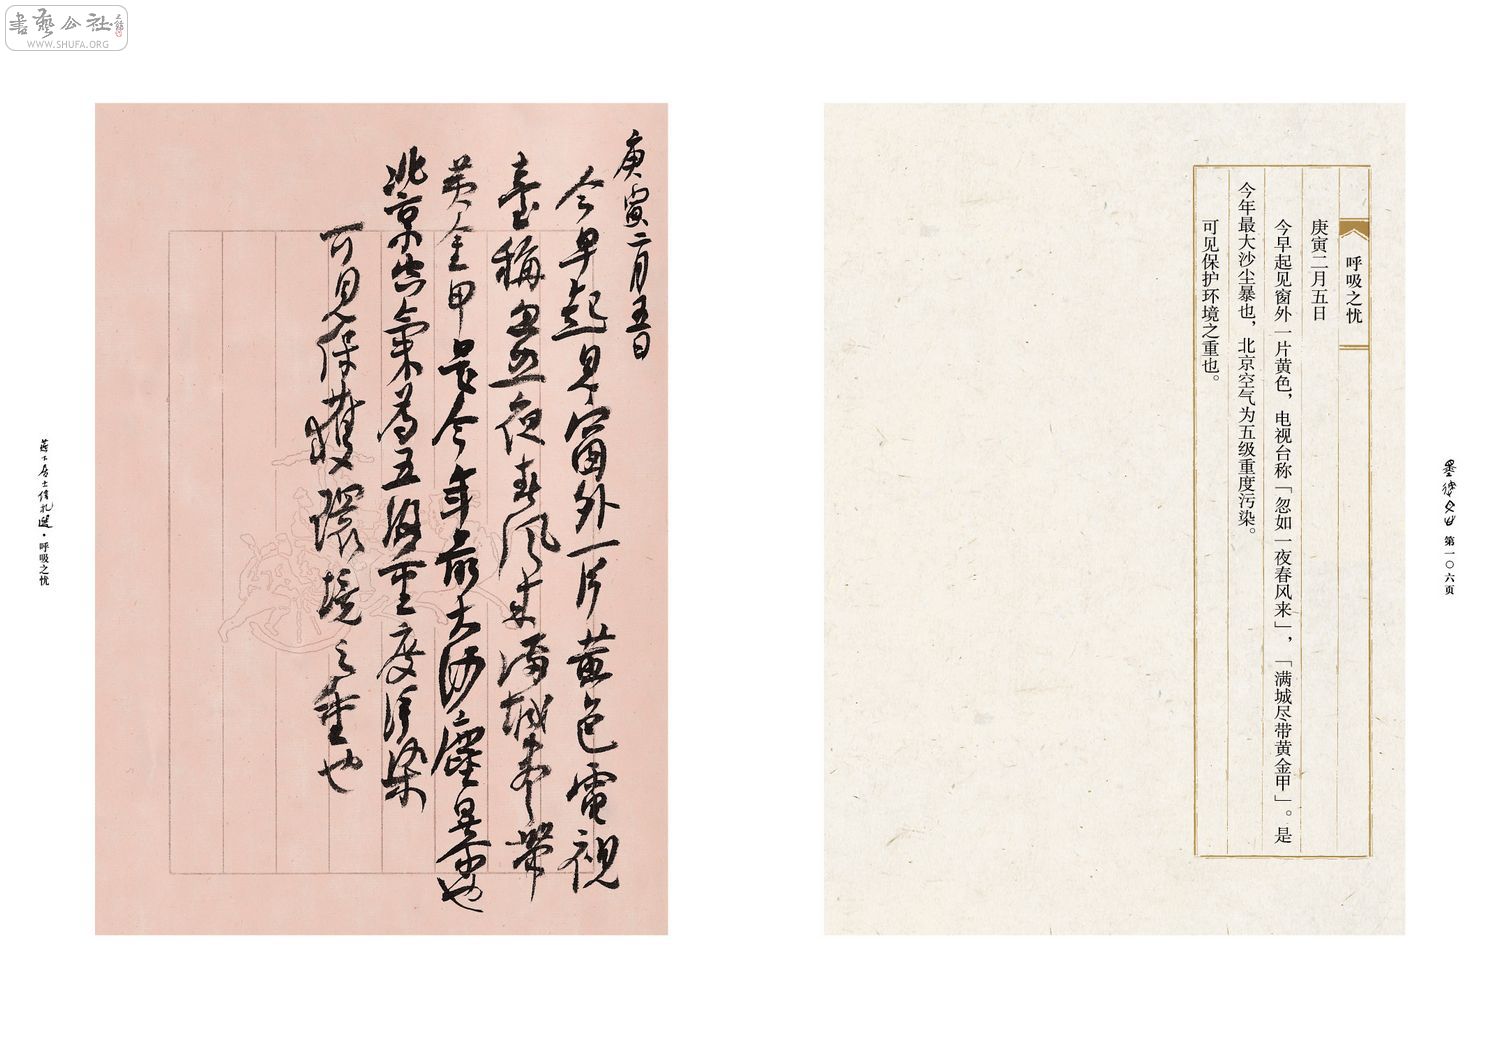 書藝公社
WWW.SHUFA.ORG
呼吸之忧
庚寅二月五日
今早起见窗外一片黄色，电视台称「忽如一夜春风来」，「满城尽带黄金甲」。是
今年最大沙尘暴也，北京空气为五级重度污染。
可见保护环境之重也。
第一〇六页
庚寅二月五日
今早起見窗外一片黄色電視
臺稱忽如一夜春风来满城尽帶
黄金甲是今年最大沙塵暴也
北京空氣為五级重度污染
可見保護環境之重也
居士信札選·呼吸之忧